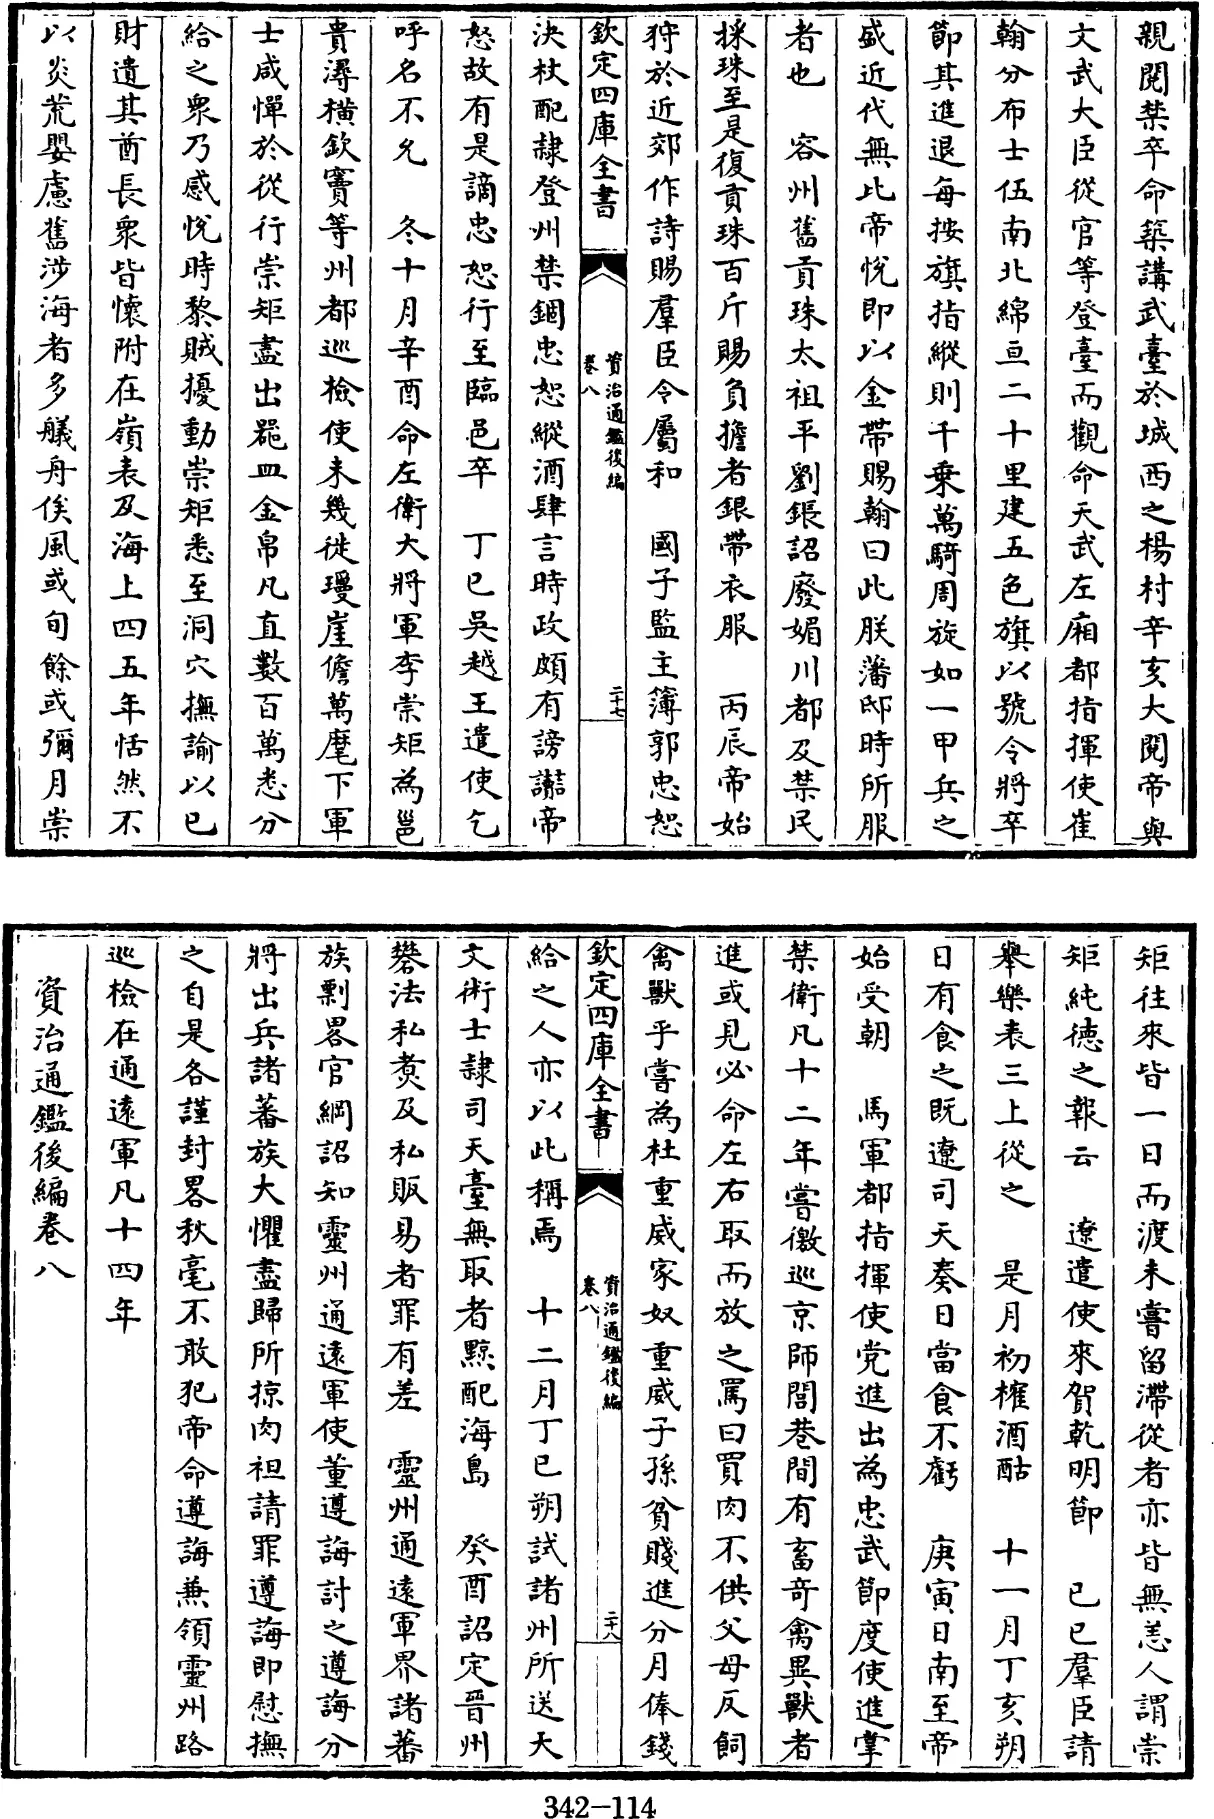 親閲禁卒命築講武臺於城西之楊村辛亥大閲帝與
文武大臣從官等登臺而觀命天武左廂都指揮使崔
翰分布士伍南北綿亘二十里建五色旗以號令將卒
節其進退每按旗指縱則千乗萬騎周旋如一甲兵之
盛近代無比帝悅即以金帶賜翰曰此朕藩邸時所服
者也　容州舊貢珠太祖平劉鋹詔廢媚川都及禁民
採珠至是復貢珠百斤賜負擔者銀帶衣服　丙辰帝始
狩於近郊作詩賜羣臣令屬和　國子監主簿郭忠恕
欽定四庫全書
資治通鑑後編
卷八
二十七
決杖配隷登州禁錮忠恕縱酒肆言時政頗有謗讟帝
怒故有是謫忠恕行至臨邑卒　丁巳吳越王遣使乞
呼名不允　冬十月辛酉命左衛大將軍李崇矩為邕
貴潯橫欽賓等州都巡檢使未幾徙瓊崖儋萬麾下軍
士咸憚於從行崇矩盡出器皿金帛凡直數百萬悉分
給之衆乃感悅時黎賊擾動崇矩悉至洞穴撫諭以已
財遺其酋長衆皆懷附在嶺表及海上四五年恬然不
以炎荒嬰慮舊涉海者多艤舟俟風或旬餘或彌月崇
矩往來皆一日而渡未嘗留滯從者亦皆無恙人謂崇
矩純德之報云　遼遣使來賀乾明節　已巳羣臣請
舉樂表三上從之　是月初榷酒酤　十一月丁亥朔
日有食之既遼司天奏日當食不虧　庚寅日南至帝
始受朝　馬軍都指揮使党進出為忠武節度使進掌
禁衛凡十二年嘗徼巡京師閭巷間有畜奇禽異獸者
進或見必命左右取而放之罵曰買肉不供父母反飼
禽獸乎嘗為杜重威家奴重威子孫貧賤進分月俸錢
欽定四庫全書
資治通鑑後編
卷八
二十八
給之人亦以此稱焉　十二月丁巳朔試諸州所送天
文術士隷司天臺無取者黥配海島　癸酉詔定晉州
礬法私煑及私販易者罪有差　靈州通遠軍界諸蕃
族剽畧官綱詔知靈州通遠軍使董遵誨討之遵誨分
將出兵諸蕃族大懼盡歸所掠肉袒請罪遵誨即慰撫
之自是各謹封畧秋毫不敢犯帝命遵誨兼領靈州路
巡檢在通遠軍凡十四年
資治通鑑後編卷八
342-114